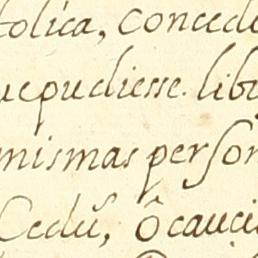 tolica, concede
uepudiesse. lib
mismas person
Cedu&#771;, ôcauci